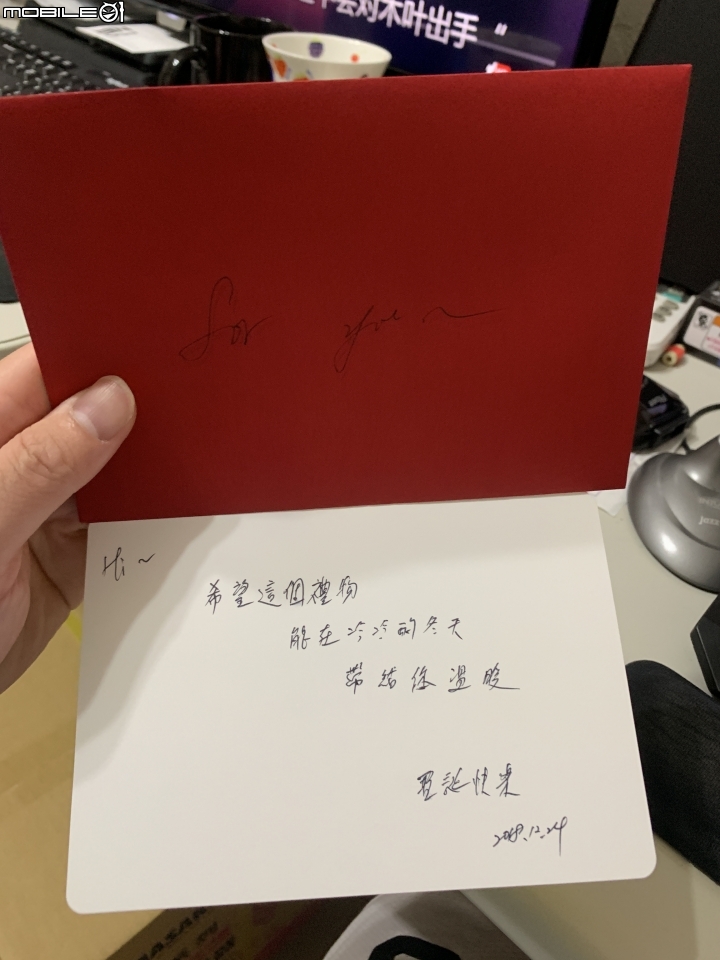 MOBILE01
会对木叶出手 "
for you ~
Hi ~
希望這個禮物
能在冷冷的冬天
帶給你溫暖
聖誕快樂
2018.12.24
Jazz